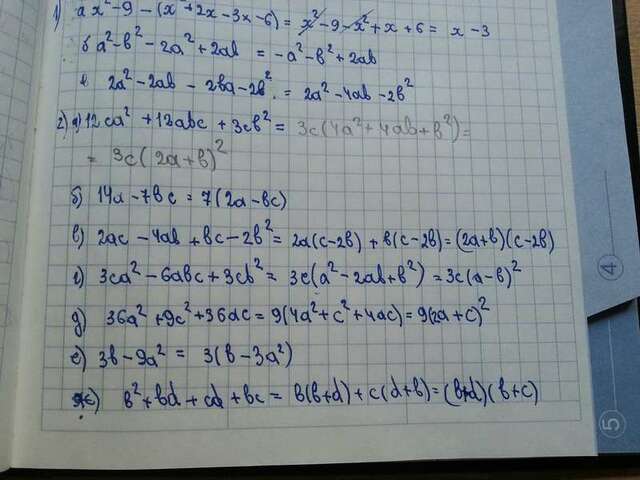 1) а x² - 9 - (x² + 2x - 3x - 6) = x² - 9 - x² + x + 6 = x - 3
б a² - b² - 2a² + 2ab = -a² - b² + 2ab
в 2a² - 2ab - 2ba - 2b² = 2a² - 4ab - 2b²
2) а) 12ca² + 12abc + 3cb² = 3c(4a² + 4ab + b²) =
= 3c(2a + b)²
б) 14a - 7bc = 7(2a - bc)
в) 2ac - 4ab + bc - 2b² = 2a(c - 2b) + b(c - 2b) = (2a + b)(c - 2b)
г) 3ca² - 6abc + 3cb² = 3c(a² - 2ab + b²) = 3c(a - b)²
д) 36a² + 9c² + 36ac = 9(4a² + c² + 4ac) = 9(2a + c)²
е) 3b - 9a² = 3(b - 3a²)
ж) b² + bd + cd + bc = b(b + d) + c(d + b) = (b + d)(b + c)
4
5